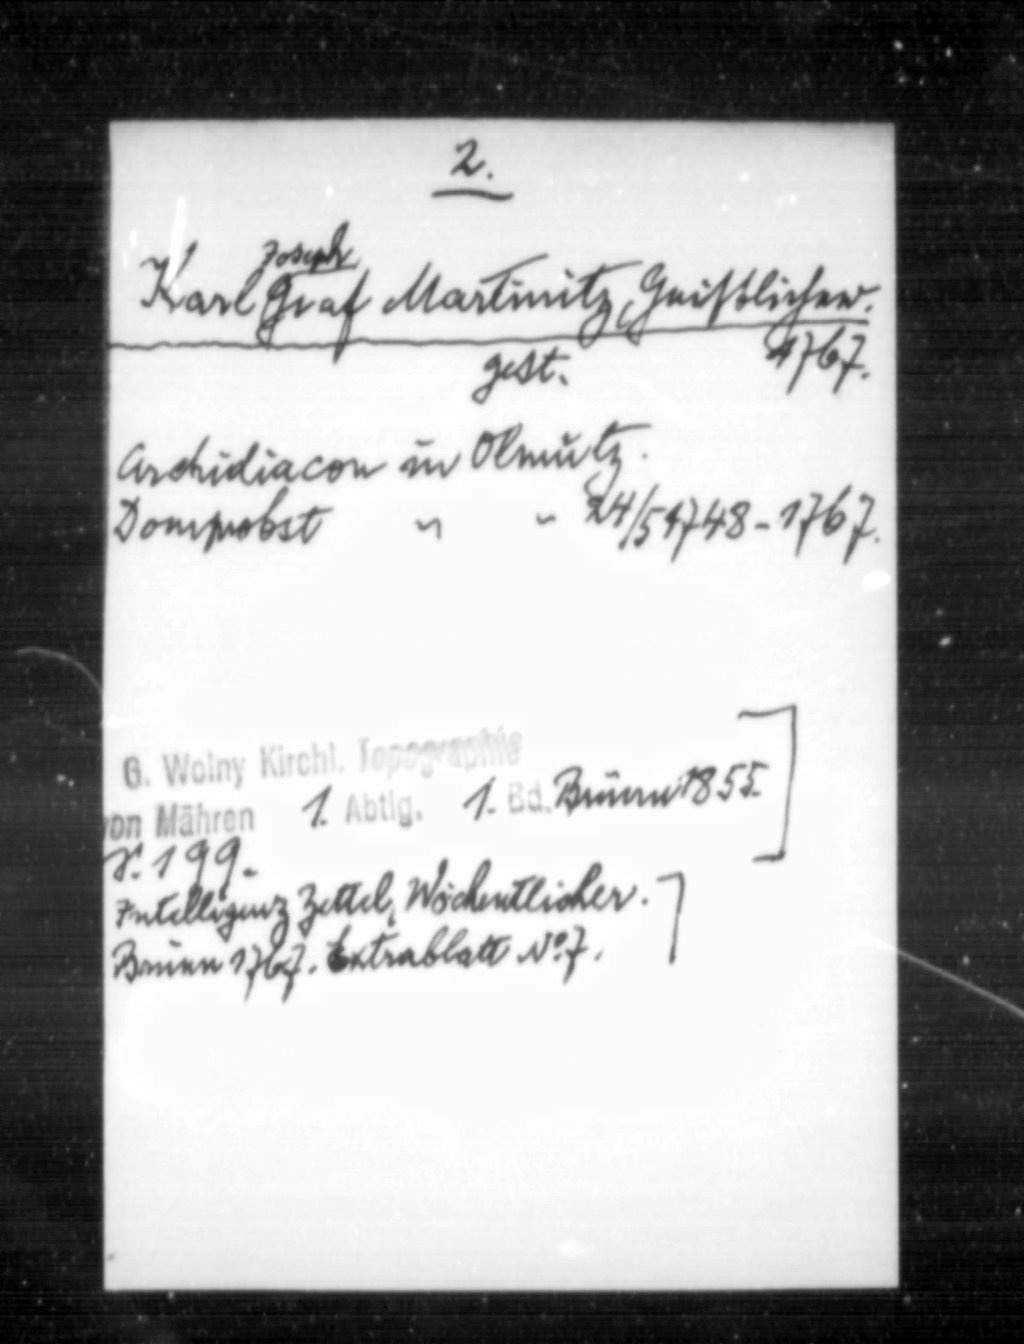 2.
Joseph
Karl Graf Martinitz, Geistlicher.
gest. 1767.
Archidiacon in Olmütz.
Domprobst " " 24/5 1748-1767.
G. Wolny Kirchl. Topographie
von Mähren 1. Abtlg. 1. Bd. Brünn 1855.]
S. 199.
Intelligenz Zettel, Wöchentlicher.]
Brünn 1767. Extrablatt No 7.